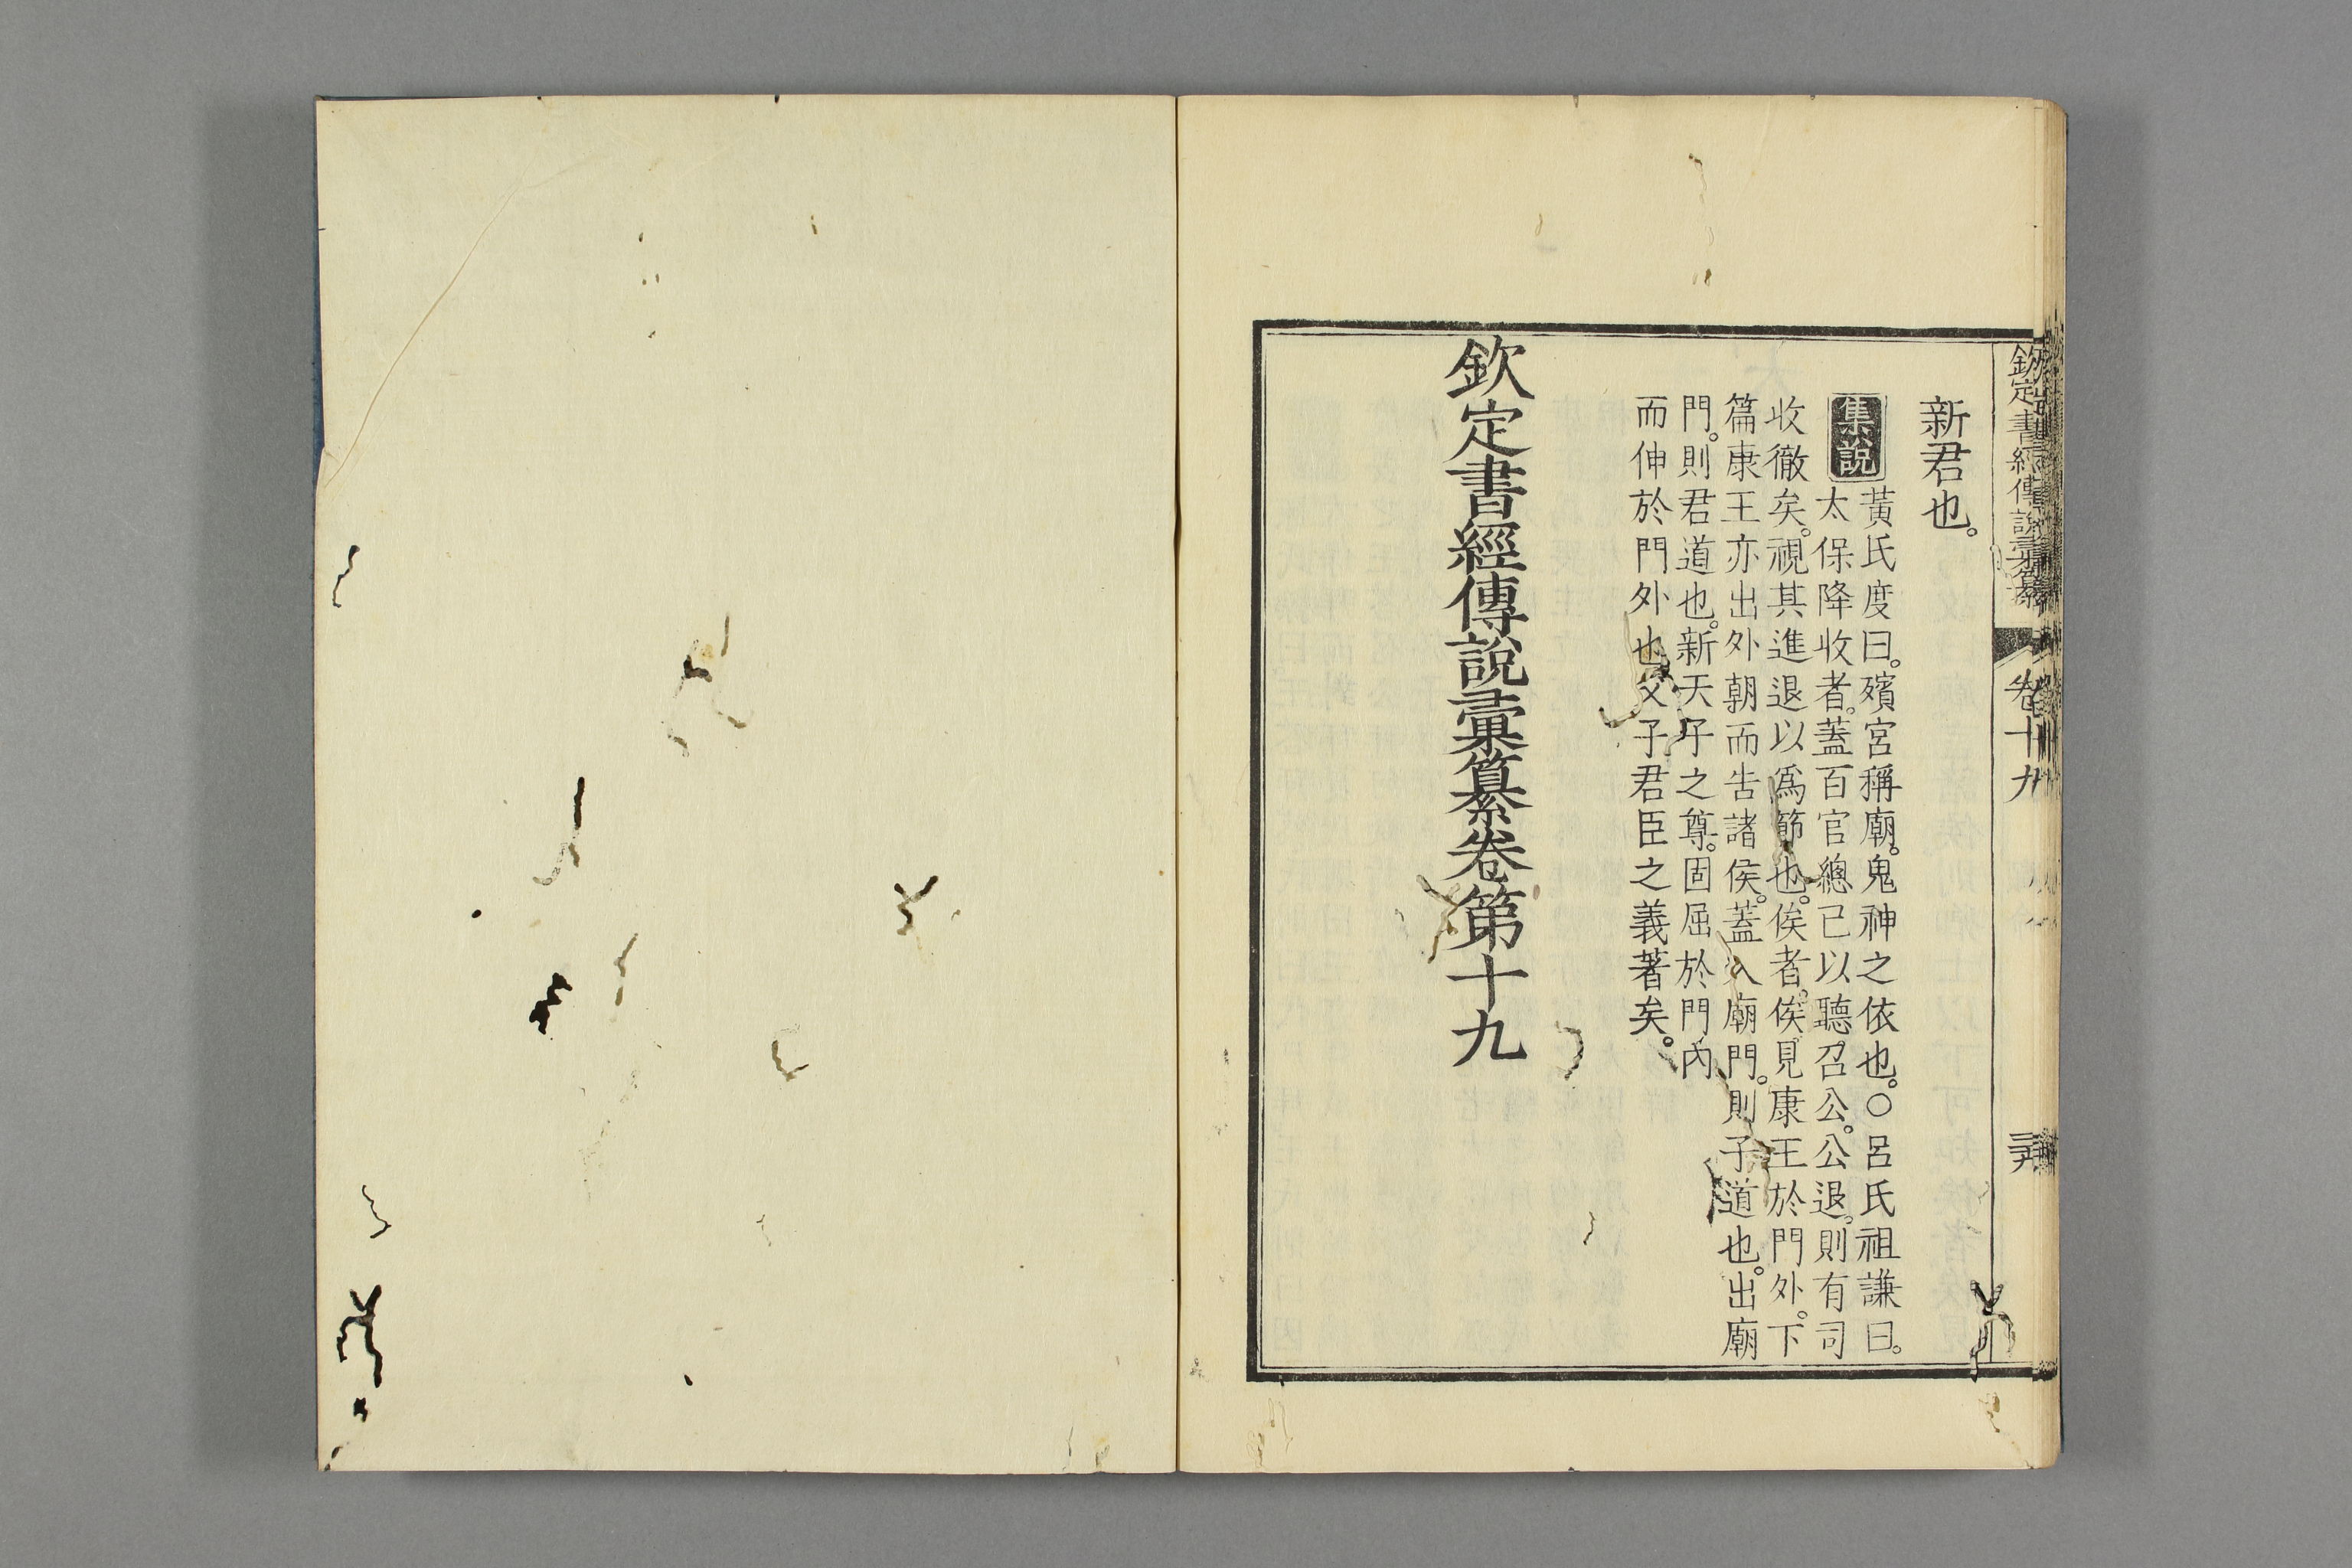 欽定書經傳說彙纂 卷十九
新君也。
集說 黃氏度曰。殯宮稱廟。鬼神之依也。○呂氏祖謙曰。
太保降收者。蓋百官總已以聽召公。公退。則有司
收徹矣。視其進退以爲節也。俟者。俟見康王於門外。下
篇康王亦出外朝而告諸侯。蓋入廟門。則子道也。出廟
門。則君道也。新天子之尊。固屈於門內
而伸於門外也父子君臣之義著矣。
欽定書經傳說彙纂卷第十九